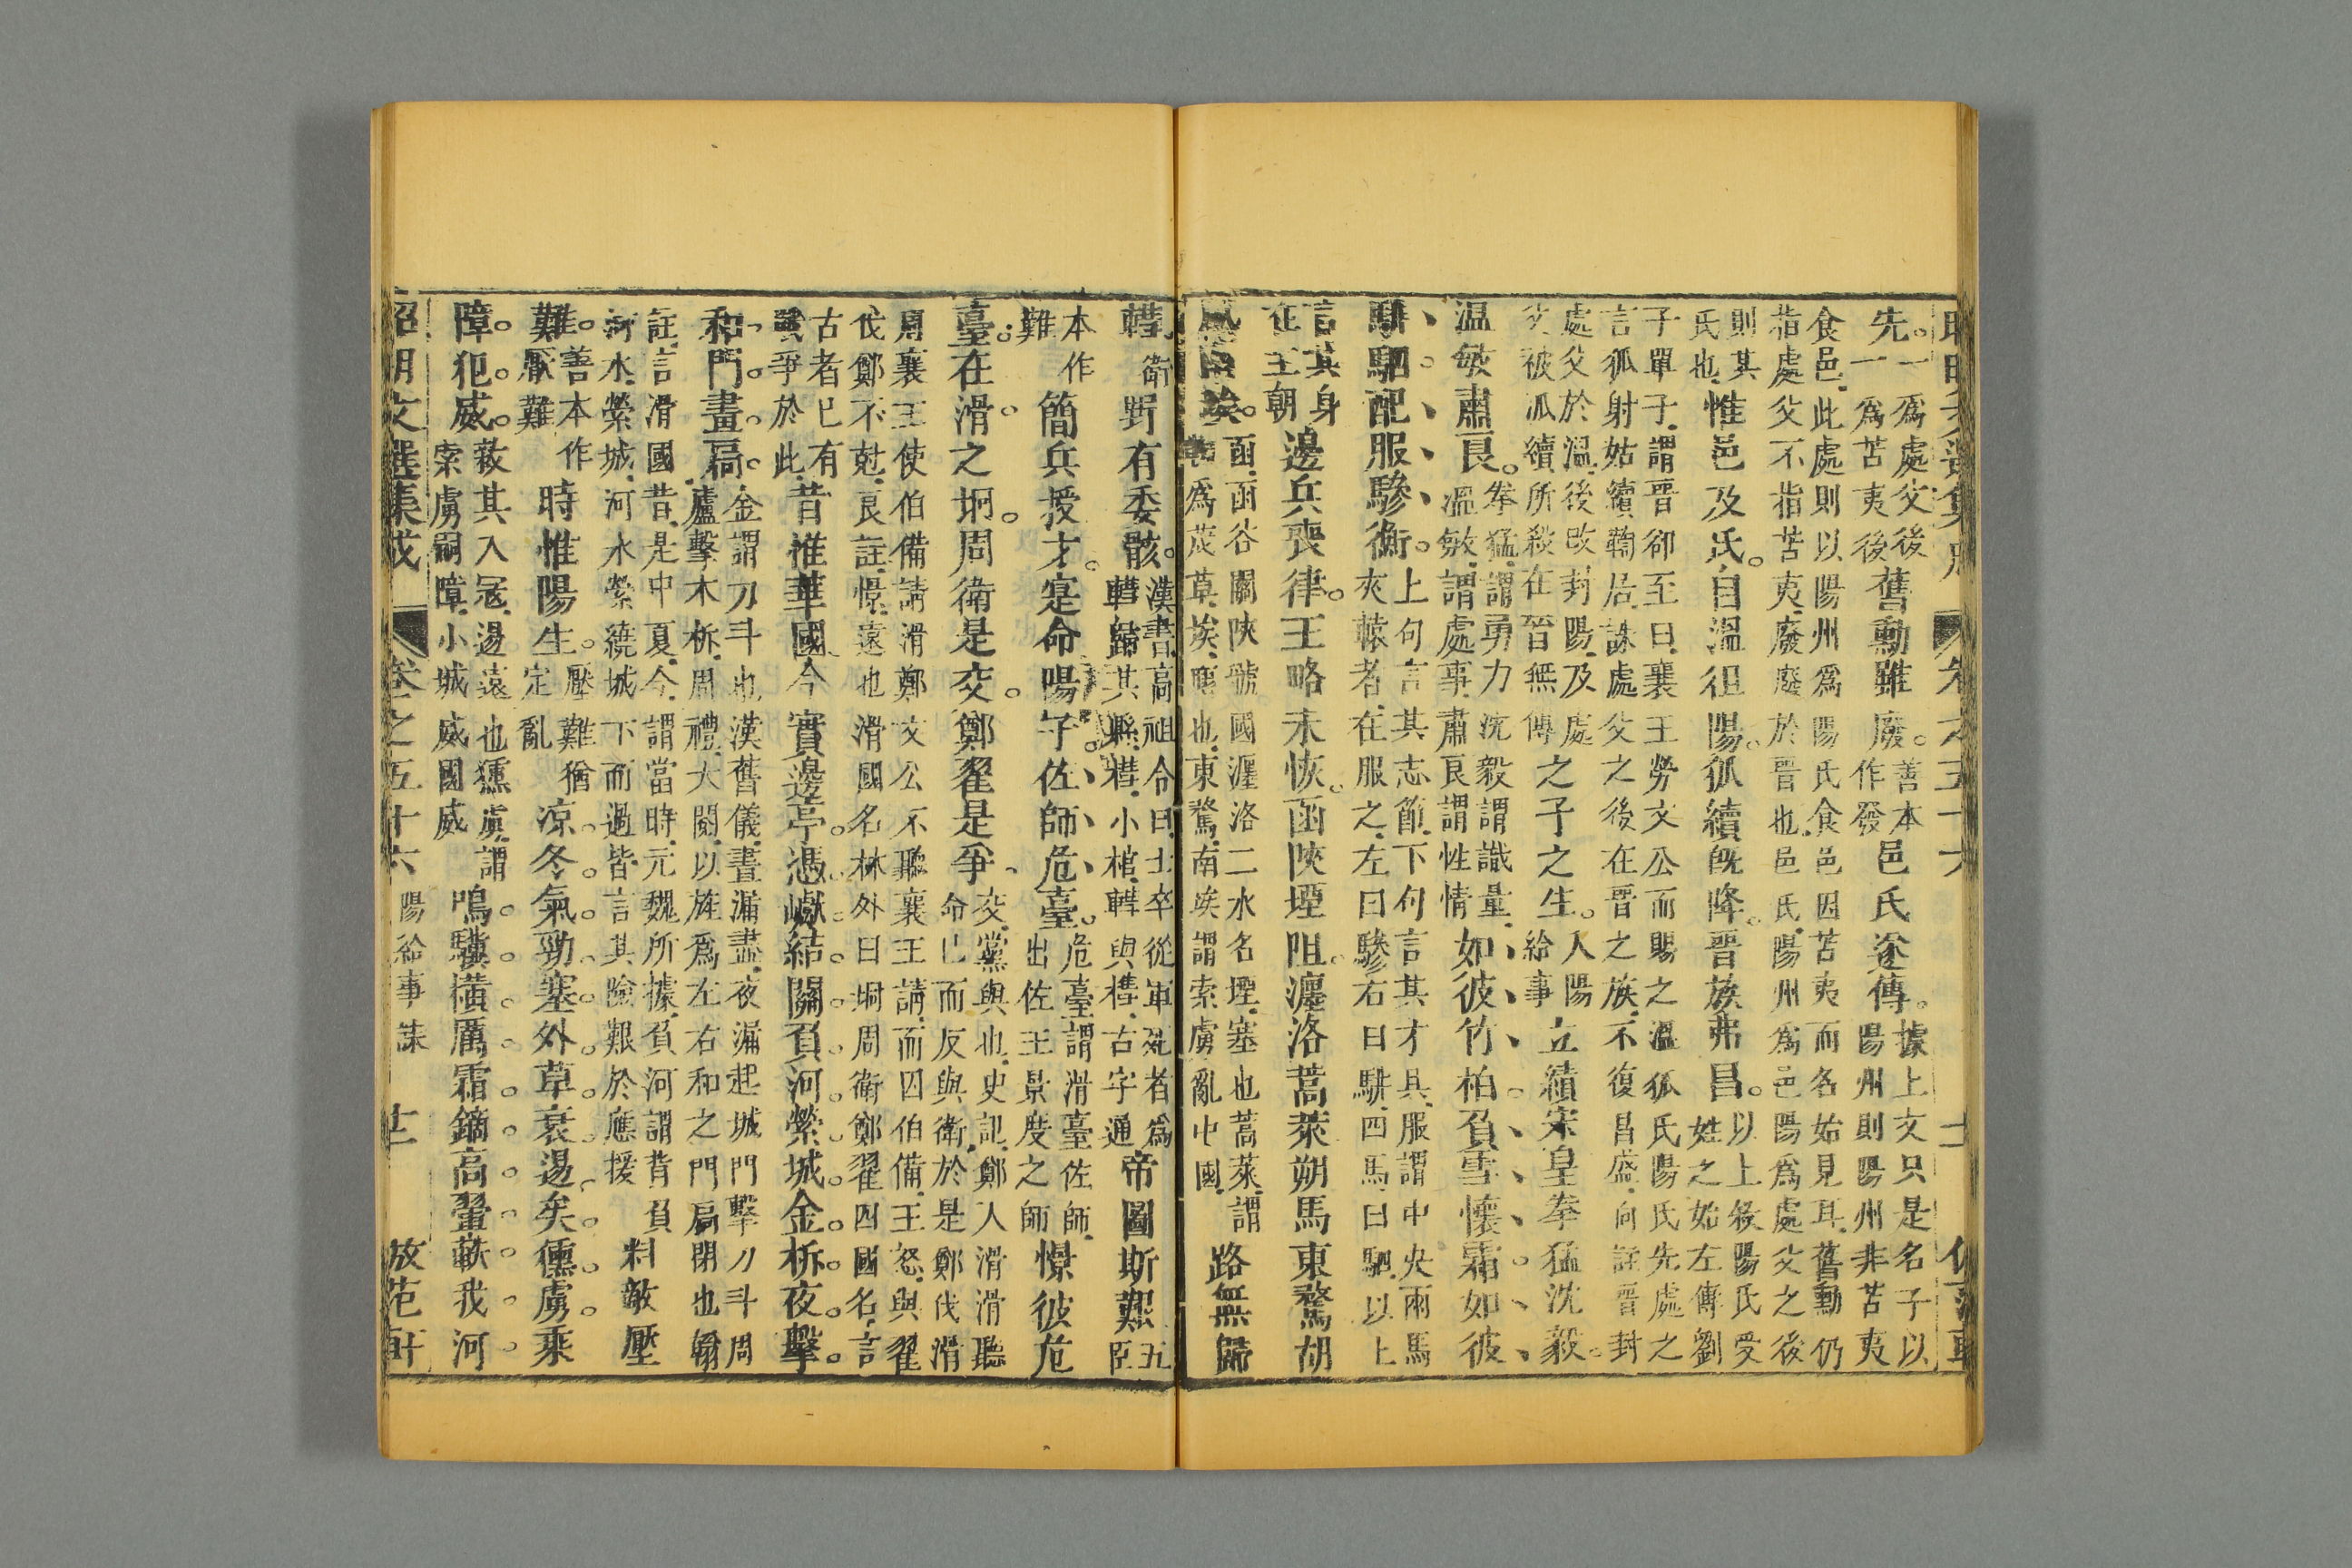 先。一為處父後一為苦夷後舊勳雖廢。善本作發邑氏遂傳。據上文只是名子以陽州則陽州非苦夷
食邑。此處則以陽州為陽氏食邑因苦夷而名始見耳。舊勳仍指處父不指苦夷。廢廢於晉也。邑氏。陽州為邑陽為處父之後
則其氏也。惟邑及氏。自溫徂陽。狐續旣降。晉族弗昌。以上敘陽氏受姓之始左傳劉
子單子。謂晉郤至曰。襄王勞文公而賜之溫狐氏陽氏先處之言狐射姑續鞫居。誅處父之後在晉之族。不復昌盛。向註晉封
處父於溫。後改封陽。及處父被狐續所殺在晉無傳之子之生。人陽給事立績宋皇拳猛沈毅。
温敏肅良。拳猛。謂勇力沈毅謂識量。溫敏。謂處事。肅良謂性情如彼竹柏。負雪懷霜。如彼
騑駟。配服驂衡。上句言其志節。下句言其才具。服謂中央兩馬夾轅者。在服之。左曰驂右曰騑。四馬曰駟。以上
言其身在王朝邊兵喪律。王略未恢。函陝堙阻。瀍洛蒿萊。朔馬東騖。胡
風南埃。函函谷關陝虢國瀍洛二水名堙。塞也蒿萊。謂為荒草。埃。塵也。東騖。南埃謂索虜亂中國。路無歸
轊。衛野有委骸。漢書。高祖令曰。士卒從軍死者為轊歸其縣。槥。小棺。轊與槥。古字通帝圖斯艱。五臣
本作難簡兵授才。寔命陽子。佐師危臺。危臺謂滑臺佐師。出佐王景度之師憬彼危
臺。在滑之坰。周衛是交。鄭翟是爭。交。黨與也。史記。鄭人滑滑聽命巳而反與衛。於是鄭伐滑
周襄王使伯備請滑鄭文公不聽襄王請。而囚伯備。王怒。與翟伐鄭不尅。良註。憬。遠也滑國名林外曰坰周衛鄭翟四國名。言
古者已有戰爭於此。昔惟華國今實邊亭。憑巘結關。負河縈城。金柝夜擊。
和門晝扃。金謂刀斗也漢舊儀。晝漏盡。夜漏起城門擊刀斗周廬擊木柝。周禮。大閱。以旌為左右和之門扃閉也翰
註。言滑國昔。是中夏。今謂當時。元魏所據。負河謂背負河水。縈城。河水縈繞城下而過。皆言其險艱於應援料敵壓
難。善本作厭難時惟陽生。壓難猶定亂凉冬氣勁。塞外草衰。逷矣獯虜。乘
障犯威。敘其入寇。逷遠也獯虜。謂索虜嗣障。小城威國威鳴驥橫厲霜鏑高翬。軼我河
昭明文選集成 卷之五十六 陽給事誄 十二 放范軒